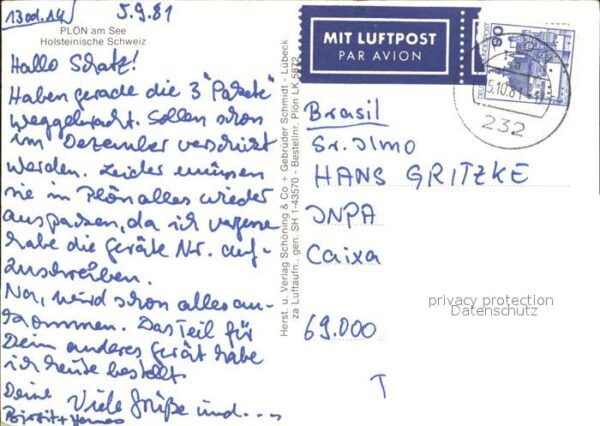 13 od. 14
5.9.81
PLÖN am See
Holsteinische Schweiz
Hallo Schatz!
Haben gerade die 3 "Pakete"
weggebracht. Sollen schon
im Dezember verschickt
werden. Leider müssen
sie in Plön alles wieder
auspacken, da ich vergessen
habe die geräte Nr. auf-
zuschreiben.
Na, wird schon alles an-
kommen. Das Teil für
Dein anderes gerät habe
ich heute bestellt
Viele Grüße und....
Deine
Herst. u. Verlag Schöning & Co + Gebrüder Schmidt - Lübeck
za Luftaufn., gen. SH 1-43570 - Bestellnr. Plön LK 5872
MIT LUFTPOST
PAR AVION
90
5.10.81
232
Brasil
Sr. Ilmo
HANS GRITZKE
INPA
Caixa
69.000
T
privacy protection
Datenschutz